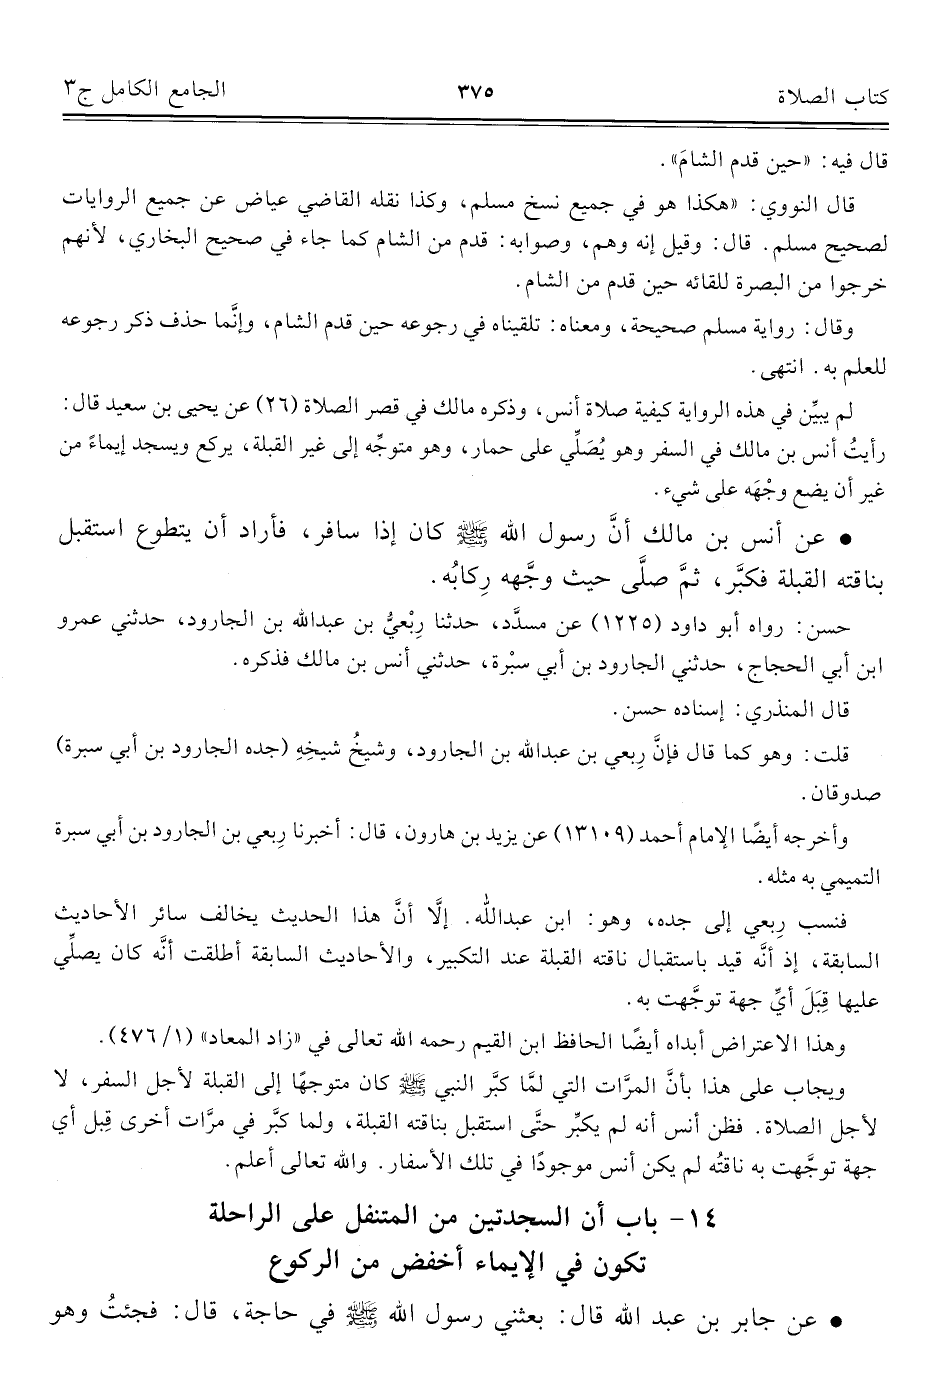 كتاب الصلاة ٣٧٥ الجامع الكامل ج٣
قال فيه: «حين قدم الشامَ».
قال النووي: «هكذا هو في جميع نسخ مسلم، وكذا نقله القاضي عياض عن جميع الروايات
لصحيح مسلم. قال: وقيل إنه وهم، وصوابه: قدم من الشام كما جاء في صحيح البخاري، لأنهم
خرجوا من البصرة للقائه حين قدم من الشام.
وقال: رواية مسلم صحيحة، ومعناه: تلقيناه في رجوعه حين قدم الشام، وإنَّما حذف ذكر رجوعه
للعلم به. انتهى.
لم يبيِّن في هذه الرواية كيفية صلاة أنس، وذكره مالك في قصر الصلاة (٢٦) عن يحيى بن سعيد قال:
رأيتُ أنس بن مالك في السفر وهو يُصَلِّي على حمار، وهو متوجِّه إلى غير القبلة، يركع ويسجد إيماءً من
غير أن يضع وجْهَه على شيء.
• عن أنس بن مالك أنَّ رسول الله ﷺ كان إذا سافر، فأراد أن يتطوع استقبل
بناقته القبلة فكبَّر، ثمَّ صلَّى حيث وجَّهه رِكابُه.
حسن: رواه أبو داود (١٢٢٥) عن مسدَّد، حدثنا رِبْعيُّ بن عبدالله بن الجارود، حدثني عمرو
ابن أبي الحجاج، حدثني الجارود بن أبي سبْرة، حدثني أنس بن مالك فذكره.
قال المنذري: إسناده حسن.
قلت: وهو كما قال فإنَّ رِبعي بن عبدالله بن الجارود، وشيخُ شيخِهِ (جده الجارود بن أبي سبرة)
صدوقان.
وأخرجه أيضًا الإمام أحمد (١٣١٠٩) عن يزيد بن هارون، قال: أخبرنا رِبعي بن الجارود بن أبي سبرة
التميمي به مثله.
فنسب رِبعي إلى جده، وهو: ابن عبدالله. إلَّا أنَّ هذا الحديث يخالف سائر الأحاديث
السابقة، إذ أنَّه قيد باستقبال ناقته القبلة عند التكبير، والأحاديث السابقة أطلقت أنَّه كان يصلِّي
عليها قِبَلَ أيِّ جهة توجَّهت به.
وهذا الاعتراض أبداه أيضًا الحافظ ابن القيم رحمه الله تعالى في «زاد المعاد» (١/ ٤٧٦).
ويجاب على هذا بأنَّ المرَّات التي لمَّا كبَّر النبي ﷺ كان متوجهًا إلى القبلة لأجل السفر، لا
لأجل الصلاة. فظن أنس أنه لم يكبِّر حتَّى استقبل بناقته القبلة، ولما كبَّر في مرَّات أخرى قِبل أي
جهة توجَّهت به ناقتُه لم يكن أنس موجودًا في تلك الأسفار. والله تعالى أعلم.
١٤- باب أن السجدتين من المتنفل على الراحلة
تكون في الإيماء أخفض من الركوع
• عن جابر بن عبد الله قال: بعثني رسول الله ﷺ في حاجة، قال: فجئتُ وهو